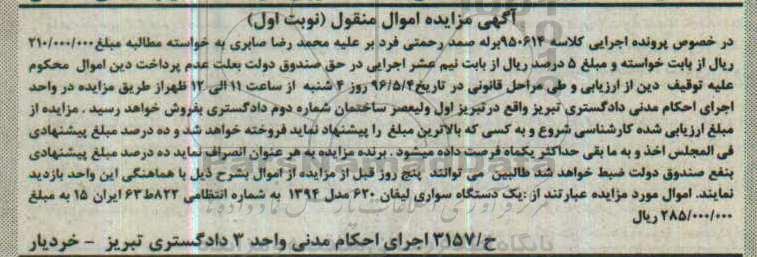 آگهی مزایده اموال منقول (نوبت اول)
در خصوص پرونده اجرایی کلاسه ۹۵۰۶۱۴برله صمد رحمتی فرد بر علیه محمد رضا صابری به خواسته مطالبه مبلغ۲۱۰/۰۰۰/۰۰۰
ریال از بابت خواسته و مبلغ ۵ درصد ریال از بابت نیم عشر اجرایی در حق صندوق دولت بعلت عدم پرداخت دین اموال محکوم
علیه توقیف دین از ارزیابی و طی مراحل قانونی در تاریخ۹۶/۵/۴ روز ۴ شنبه از ساعت ۱۱ الی ۱۲ ظهراز طریق مزایده در واحد
اجرای احکام مدنی دادگستری تبریز واقع درتبریز اول ولیعصر ساختمان شماره دوم دادگستری بفروش خواهد رسید . مزایده از
مبلغ ارزیابی شده کارشناسی شروع و به کسی که بالاترین مبلغ را پیشنهاد نماید فروخته خواهد شد و ده درصد مبلغ پیشنهادی
فی المجلس اخذ و به ما بقی حداکثر یکماه فرصت داده میشود . برنده مزایده به هر عنوان انصراف نماید ده درصد مبلغ پیشنهادی
بنفع صندوق دولت ضبط خواهد شد طالبین می توانند پنج روز قبل از مزایده از اموال بشرح ذیل با هماهنگی این واحد بازدید
نمایند. اموال مورد مزایده عبارتند از :یک دستگاه سواری لیفان ۶۲۰ مدل ۱۳۹۴ به شماره انتظامی ۸۲۲ط۶۳ ایران ۱۵ به مبلغ
۲۸۵/۰۰۰/۰۰۰ ریال
ح/۳۱۵۷ اجرای احکام مدنی واحد ۳ دادگستری تبریز - خردیار